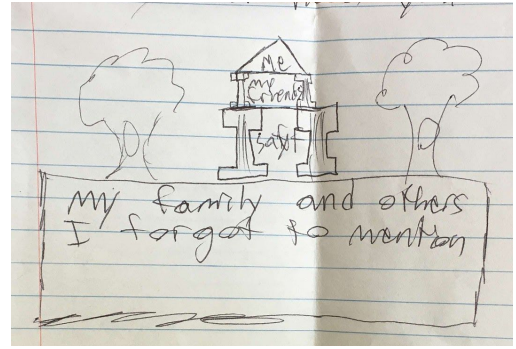 Me
my
friends
My family and others
I forgot to mention